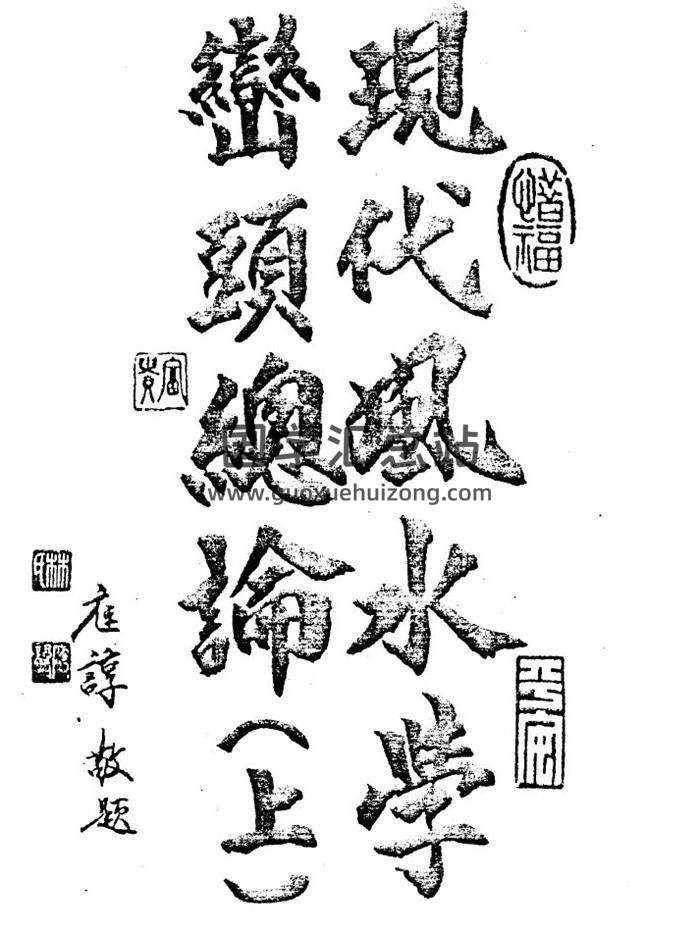 現代風水學
巒頭總論（上）
惜福
富貴
平安
敬題
国学汇总站
www.guoxuehuizong.com